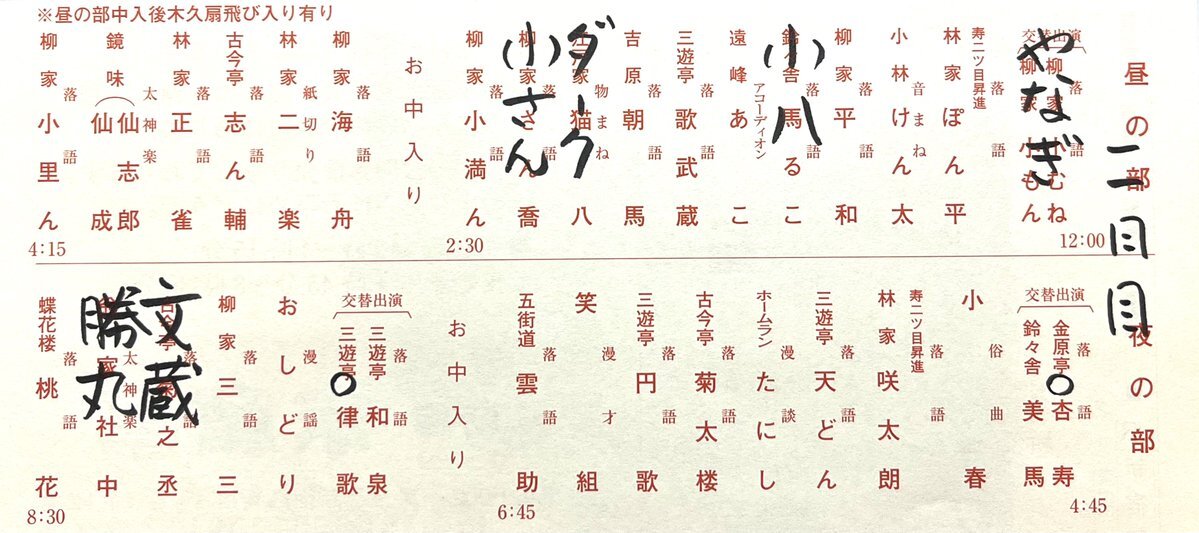 ※昼の部中入後木久扇飛び入り有り
昼の部
二日目
12:00
交替出演
落語
柳家小むね
柳家小もん
やなぎ
寿二ツ目昇進
落語
林家ぽん平
音まね
小林けん太
落語
柳家平和
鈴々舎馬るこ
小八
アコーディオン
遠峰あこ
落語
三遊亭歌武蔵
落語
吉原朝馬
物まね
江戸家猫八
ダーク
落語
柳家さん喬
小さん
落語
柳家小満ん
2:30
お中入り
落語
柳家海舟
紙切り
林家二楽
落語
古今亭志ん輔
落語
林家正雀
太神楽
鏡味仙志郎
仙成
落語
柳家小里ん
4:15
夜の部
4:45
交替出演
落語
金原亭杏寿
○
鈴々舎美馬
俗曲
小春
寿二ツ目昇進
落語
林家咲太朗
落語
三遊亭天どん
漫談
ホームランたにし
落語
古今亭菊太楼
落語
三遊亭円歌
漫才
笑組
落語
五街道雲助
6:45
お中入り
交替出演
落語
三遊亭和泉
三遊亭律歌
○
漫謡
おしどり
落語
柳家三三
落語
古今亭菊之丞
文蔵
太神楽
家社中
勝丸
落語
蝶花楼桃花
8:30